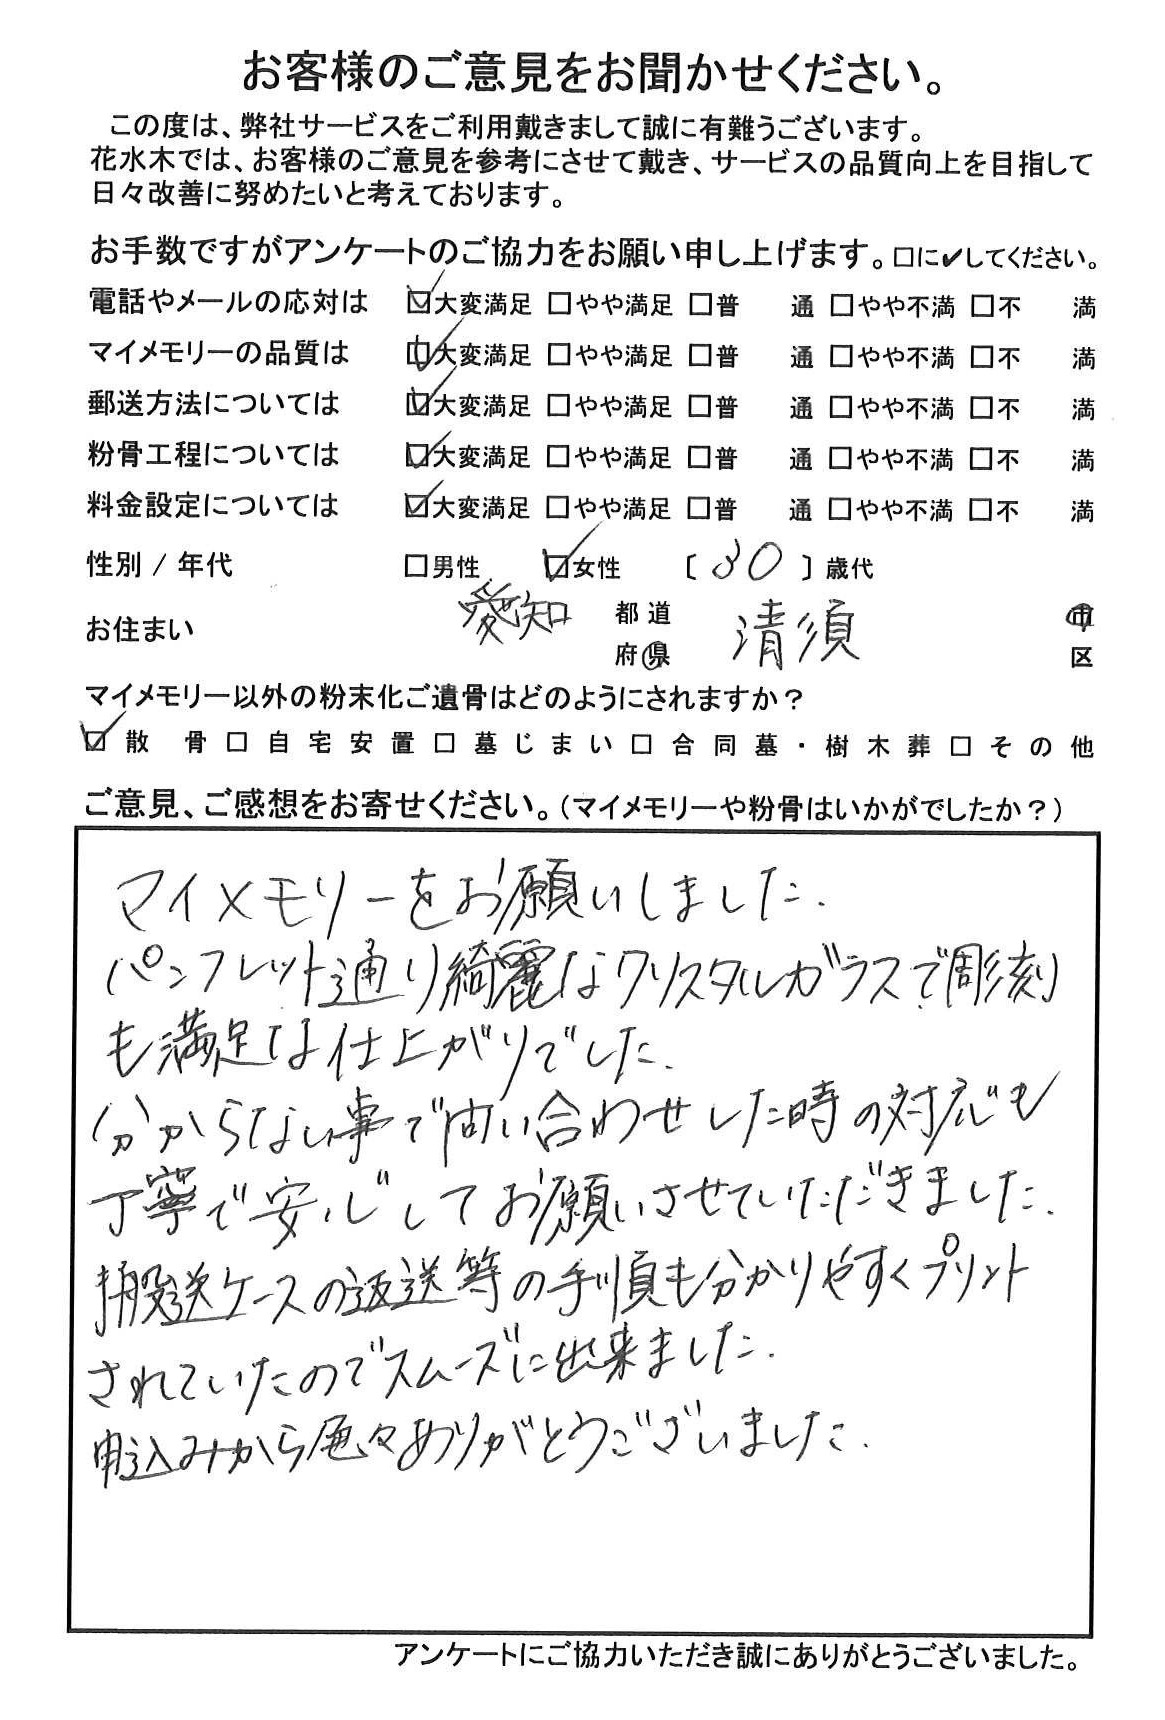 お客様のご意見をお聞かせください。
この度は、弊社サービスをご利用戴きまして誠に有難うございます。
花水木では、お客様のご意見を参考にさせて戴き、サービスの品質向上を目指して
日々改善に努めたいと考えております。
お手数ですがアンケートのご協力をお願い申し上げます。□に✔してください。
電話やメールの応対は ☑大変満足 □やや満足 □普 通 □やや不満 □不 満
マイメモリーの品質は ☑大変満足 □やや満足 □普 通 □やや不満 □不 満
郵送方法については ☑大変満足 □やや満足 □普 通 □やや不満 □不 満
粉骨工程については ☑大変満足 □やや満足 □普 通 □やや不満 □不 満
料金設定については ☑大変満足 □やや満足 □普 通 □やや不満 □不 満
性別 / 年代 □男性 ☑女性 〔 30 〕歳代
お住まい 愛知 都道府県 清須 市区
マイメモリー以外の粉末化ご遺骨はどのようにされますか？
☑散 骨 □自宅安置 □墓じまい □合同墓・樹木葬 □その他
ご意見、ご感想をお寄せください。（マイメモリーや粉骨はいかがでしたか？）
マイメモリーをお願いしました.
パンフレット通り綺麗なクリスタルガラスで彫刻
も満足な仕上がりでした.
分からない事で問い合わせした時の対応も
丁寧で安心してお願いさせていただきました.
搬送ケースの返送等の手順も分かりやすくプリント
されていたのでスムーズに出来ました.
申込みから色々ありがとうございました.
アンケートにご協力いただき誠にありがとうございました。